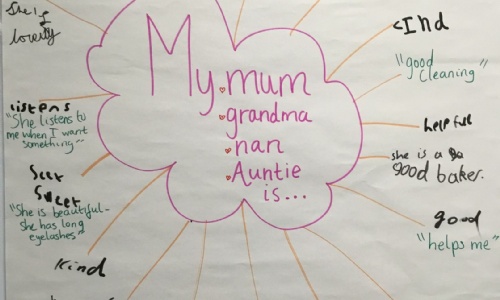 She is
lovely
My mum
grandma
nan
Auntie
is...
listens
"She listens to
me when I want
something"
Seet
Sweet
"She is beautiful -
she has long
eyelashes"
Kind
cInd
"good
cleaning"
helpfull
she is a
good baker.
good
"helps me"